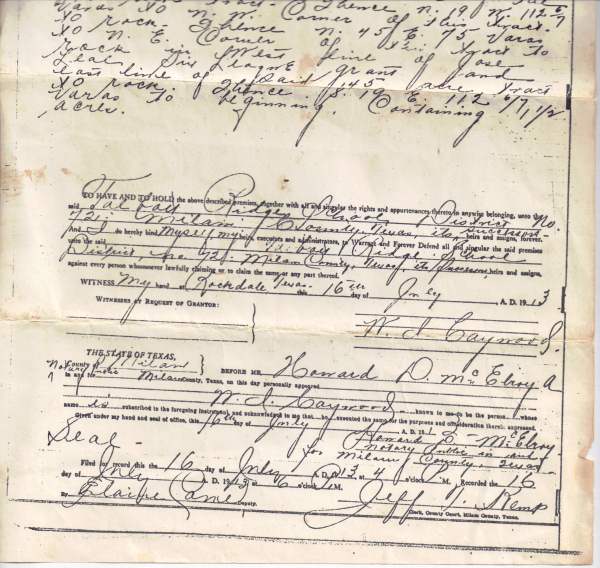 N. 19 W. 112 6/7
to rock. Thence N. W. Corner of this tract.
N. E. Corner N. 45 E. 75 varas
rock in West line of this tract to
Leal Six League grant of Jose
east line of said 545 acre and
to rock. Thence S. 19 E. tract
varas to beginning. Containing 112 6/7, 1 1/2
acres.
TO HAVE AND TO HOLD the above described premises, together with all and singular the rights and appurtenances thereto in anywise belonging, unto the
said Talbott Ridge School District No.
72. Milam County, Texas, its successors heirs and assigns, forever.
And I do hereby bind myself, my heirs, executors and administrators, to Warrant and Forever Defend all and singular the said premises
unto the said Talbott Ridge School
District no 72. Milam County, Texas, its successors, heirs and assigns,
against every person whomsoever lawfully claiming or to claim the same or any part thereof.
WITNESS my hand at Rockdale Texas. this 16th day of July A. D. 1913
WITNESSES AT REQUEST OF GRANTOR:
W. I. Caywood.
THE STATE OF TEXAS,
County of Milam
BEFORE ME, Howard D. McElroy A
Notary Public
in and for Milam County, Texas, on this day personally appeared
W. I. Caywood known to me to be the person whose
name is subscribed to the foregoing instrument, and acknowledged to me that he executed the same for the purposes and consideration therein expressed.
Given under my hand and seal of office, this 16th day of July A. D. 1913
Howard D. McElroy
Seal- Notary Public in and
for Milam County, Texas
Filed for record this the 16 day of July A. D. 1913, 4 o'clock M. Recorded the 16
day of July A. D. 1913 at 6 o'clock M.
Jeff T. Kemp
By Elaine Deputy.
Clerk, County Court, Milam County, Texas.